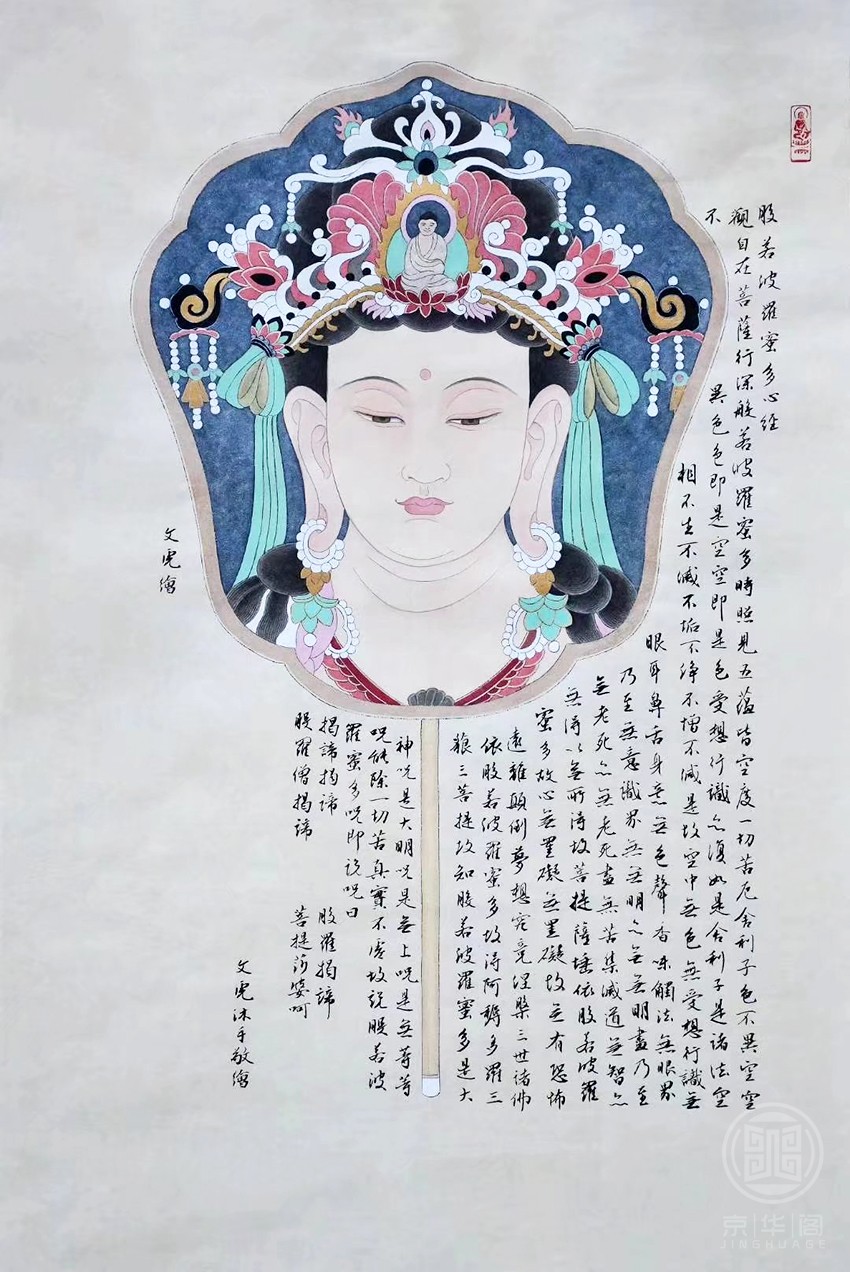 般若波羅蜜多心經
觀自在菩薩行深般若波羅蜜多時照見五蘊皆空度一切苦厄舍利子色不異空空
不異色色即是空空即是色受想行識亦復如是舍利子是諸法空
相不生不滅不垢不净不增不減是故空中無色無受想行識無
眼耳鼻舌身意無色聲香味觸法無眼界
乃至無意識界無無明亦無無明盡乃至
無老死亦無老死盡無苦集滅道無智亦
無得以無所得故菩提薩埵依般若波羅
蜜多故心無罣礙無罣礙故無有恐怖
遠離顛倒夢想究竟涅槃三世諸佛
依般若波羅蜜多故得阿耨多羅三
藐三菩提故知般若波羅蜜多是大
神咒是大明咒是無上咒是無等等
咒能除一切苦真實不虛故說般若波
羅蜜多咒即說咒曰
揭諦揭諦 般羅揭諦
般羅僧揭諦 菩提莎婆呵
文虎沐手敬繪
文虎繪
京华阁
JINGHUAGE